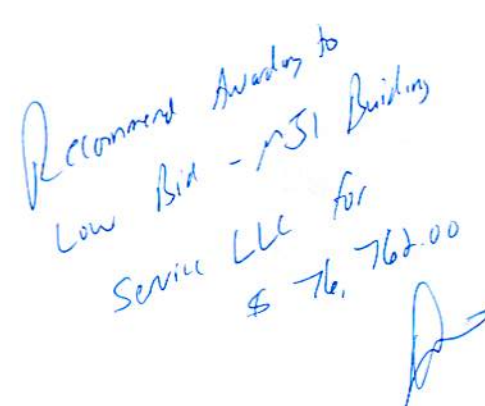 Recommend Awarding to
Low Bid - MJI Building
Service LLC for
$ 76,762.00